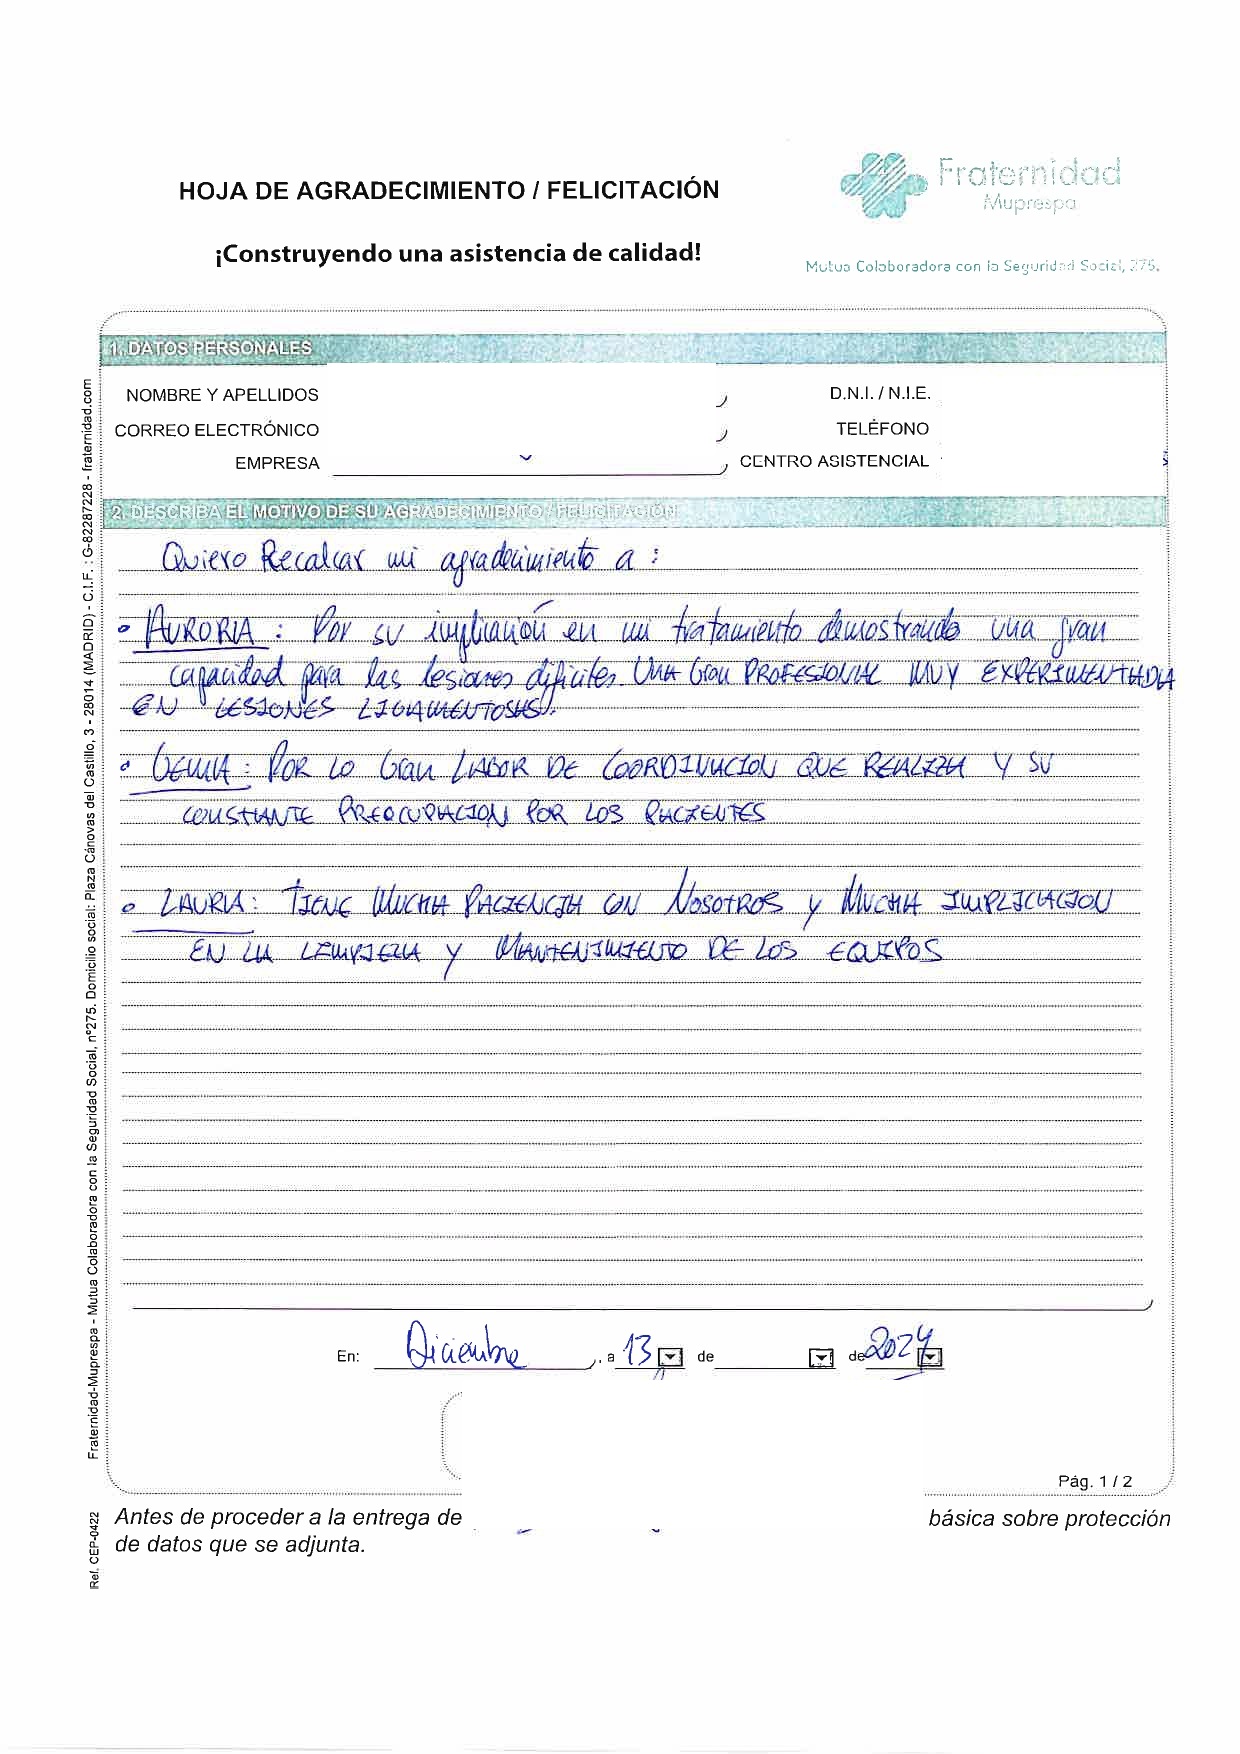 HOJA DE AGRADECIMIENTO / FELICITACIÓN
Fraternidad
Muprespa
¡Construyendo una asistencia de calidad!
Mutua Colaboradora con la Seguridad Social, 275.
1. DATOS PERSONALES
NOMBRE Y APELLIDOS
D.N.I. / N.I.E.
CORREO ELECTRÓNICO
TELÉFONO
EMPRESA
CENTRO ASISTENCIAL
2. DESCRIBA EL MOTIVO DE SU AGRADECIMIENTO / FELICITACIÓN
Quiero Recalcar mi agradecimiento a :
AURORIA : Por su implicación en mi tratamiento demostrando una gran
capacidad para las lesiones dificiles. UNA Gran PROFESIONAL MUY EXPERIMENTADA
EN LESIONES LIGAMENTOSAS.
GEMA : POR LO Gran LABOR DE COORDINACION QUE REALIZA Y SU
CONSTANTE PREOCUPACION POR LOS PACIENTES
LAURA : TIENE MUCHA PACIENCIA CON NOSOTROS y MUCHA IMPLICACION
EN LA LIMPIEZA y MANTENIMIENTO DE LOS EQUIPOS
En: Diciembre , a 13 de de 2024
Pág. 1 / 2
Antes de proceder a la entrega de básica sobre protección
de datos que se adjunta.
Fraternidad-Muprespa - Mutua Colaboradora con la Seguridad Social, nº275. Domicilio social: Plaza Cánovas del Castillo, 3 - 28014 (MADRID) - C.I.F. : G-82287228 - fraternidad.com
Ref. CEP-0422